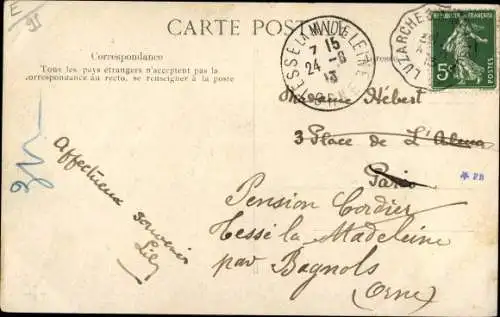 E
CARTE POSTALE
Correspondance
Tous les pays étrangers n'acceptent pas la
correspondance au recto, se renseigner à la poste
TESSE LA MADELEINE
7 15
24 -8
13
ORNE
LUZARCHES
REPUBLIQUE FRANÇAISE
5c
Madame Hébert
3 Place de L'Alma
Paris
Pension Cordier
Tessé la Madeleine
par Bagnols
(Orne)
Affectueux souvenir
Lily